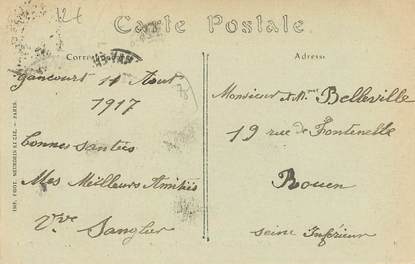 124
Carte Postale
Correspondance
Adresse
Gancourt 11 Aout
1917
bonnes santées
Mes Meilleurs Amitiés
Vve Sanglier
Monsieur et Mme Belleville
19 rue de Fontenelle
Rouen
Seine Inférieure
PARIS.